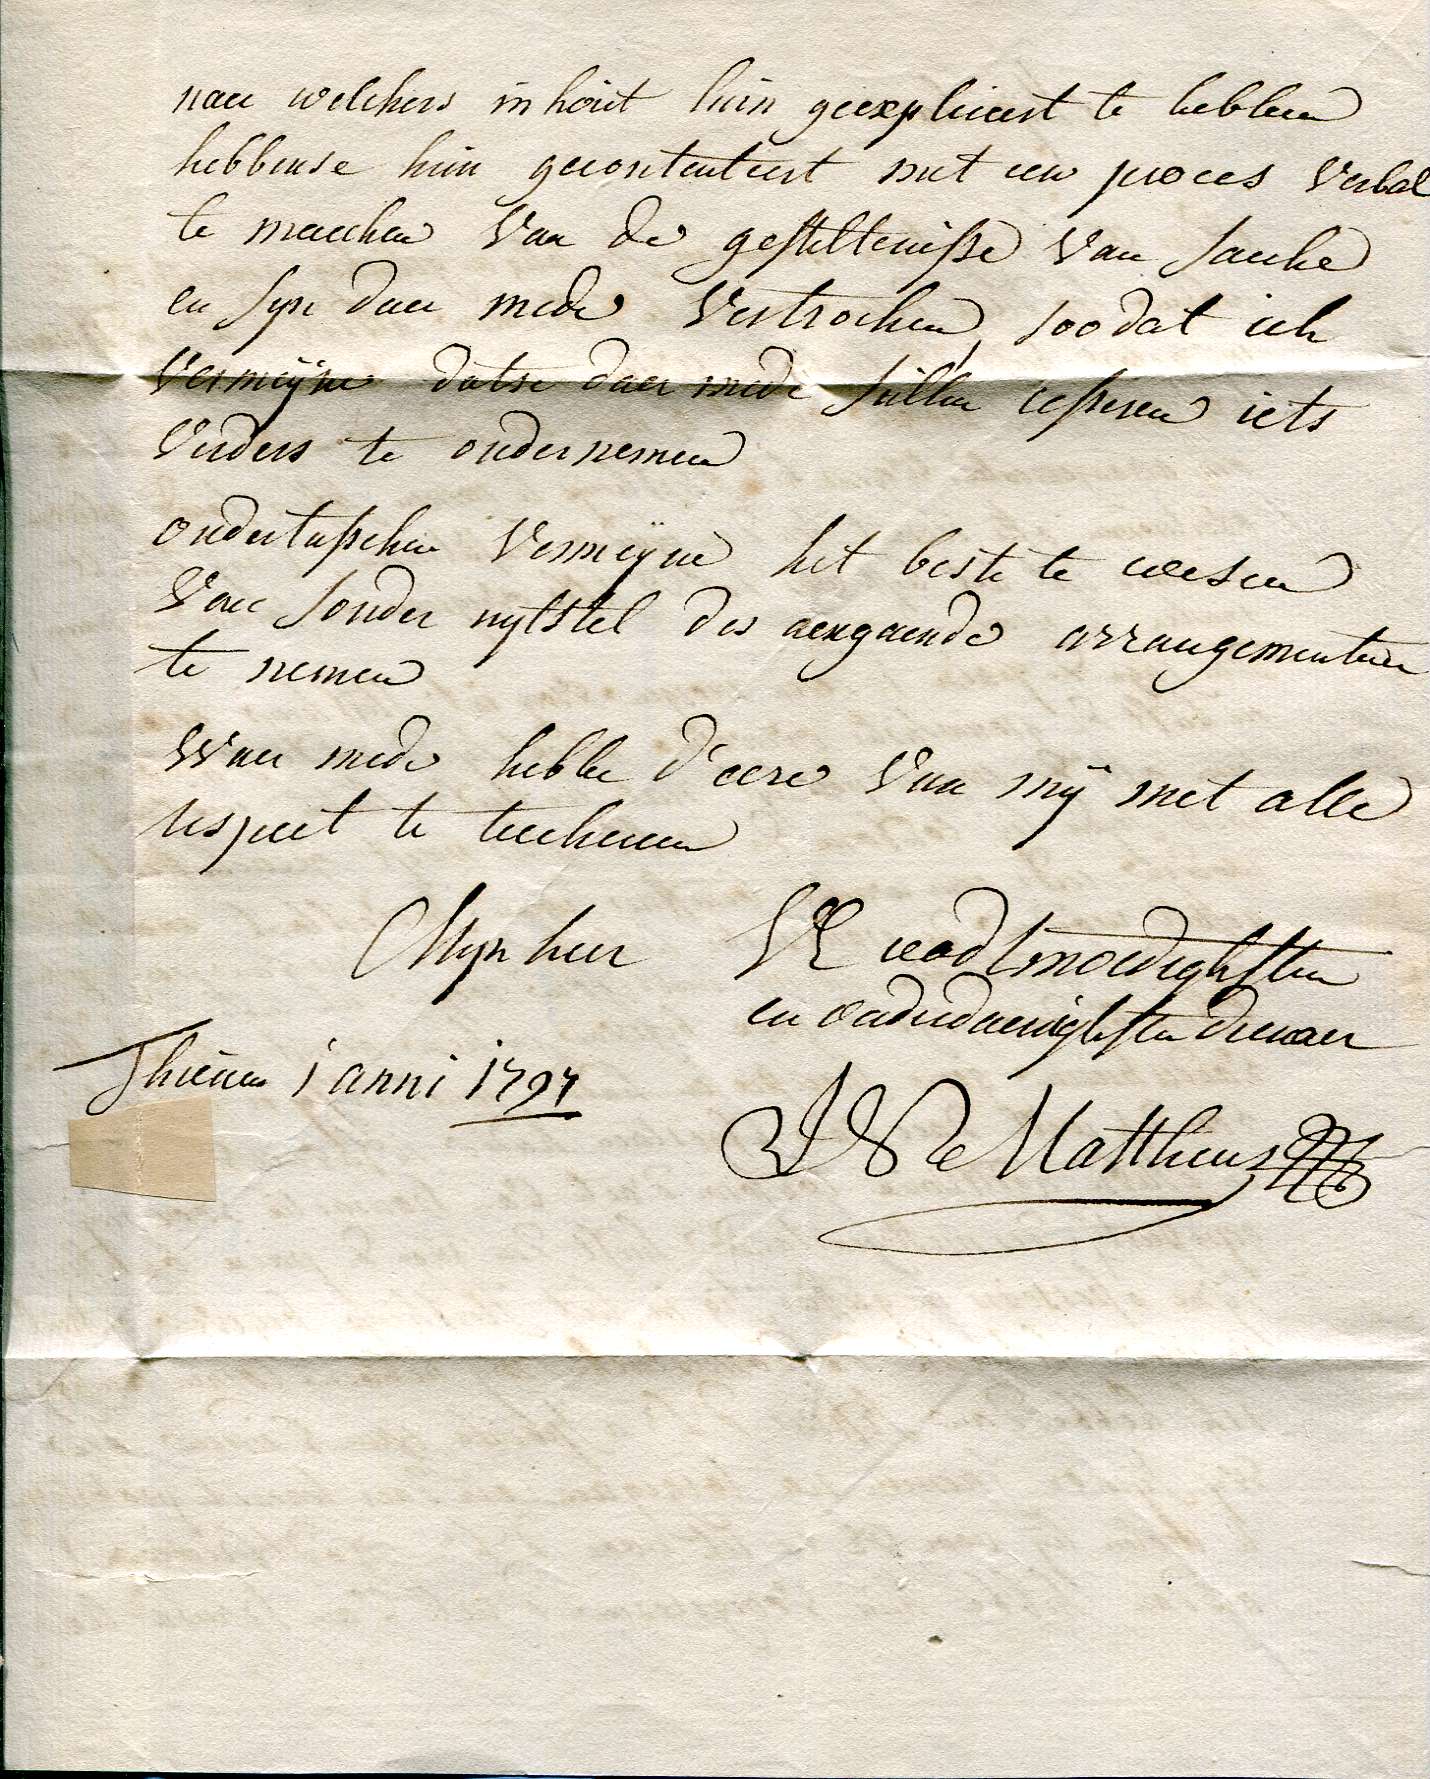 naer welckers inhout hun geexpliceert te hebben
hebbense hun gecontenteert met een proces verbal
te maecken van de gesteltenisse van saecke
en syn daer mede vertrocken, soo dat ick
vermeÿne datse daer mede sullen cesseren iets
verders te ondernemen
ondertusschen vermeÿne het beste te wesen
van sonder uytstel des aengaende arrangementen
te nemen
Waer mede hebbe d'eere van mÿ met alle
respect te teekenen
Mynheer VE oodtmoedighsten
en onderdaenighsten dienaer
Thienen 1 anni 1797
J De Mattheus